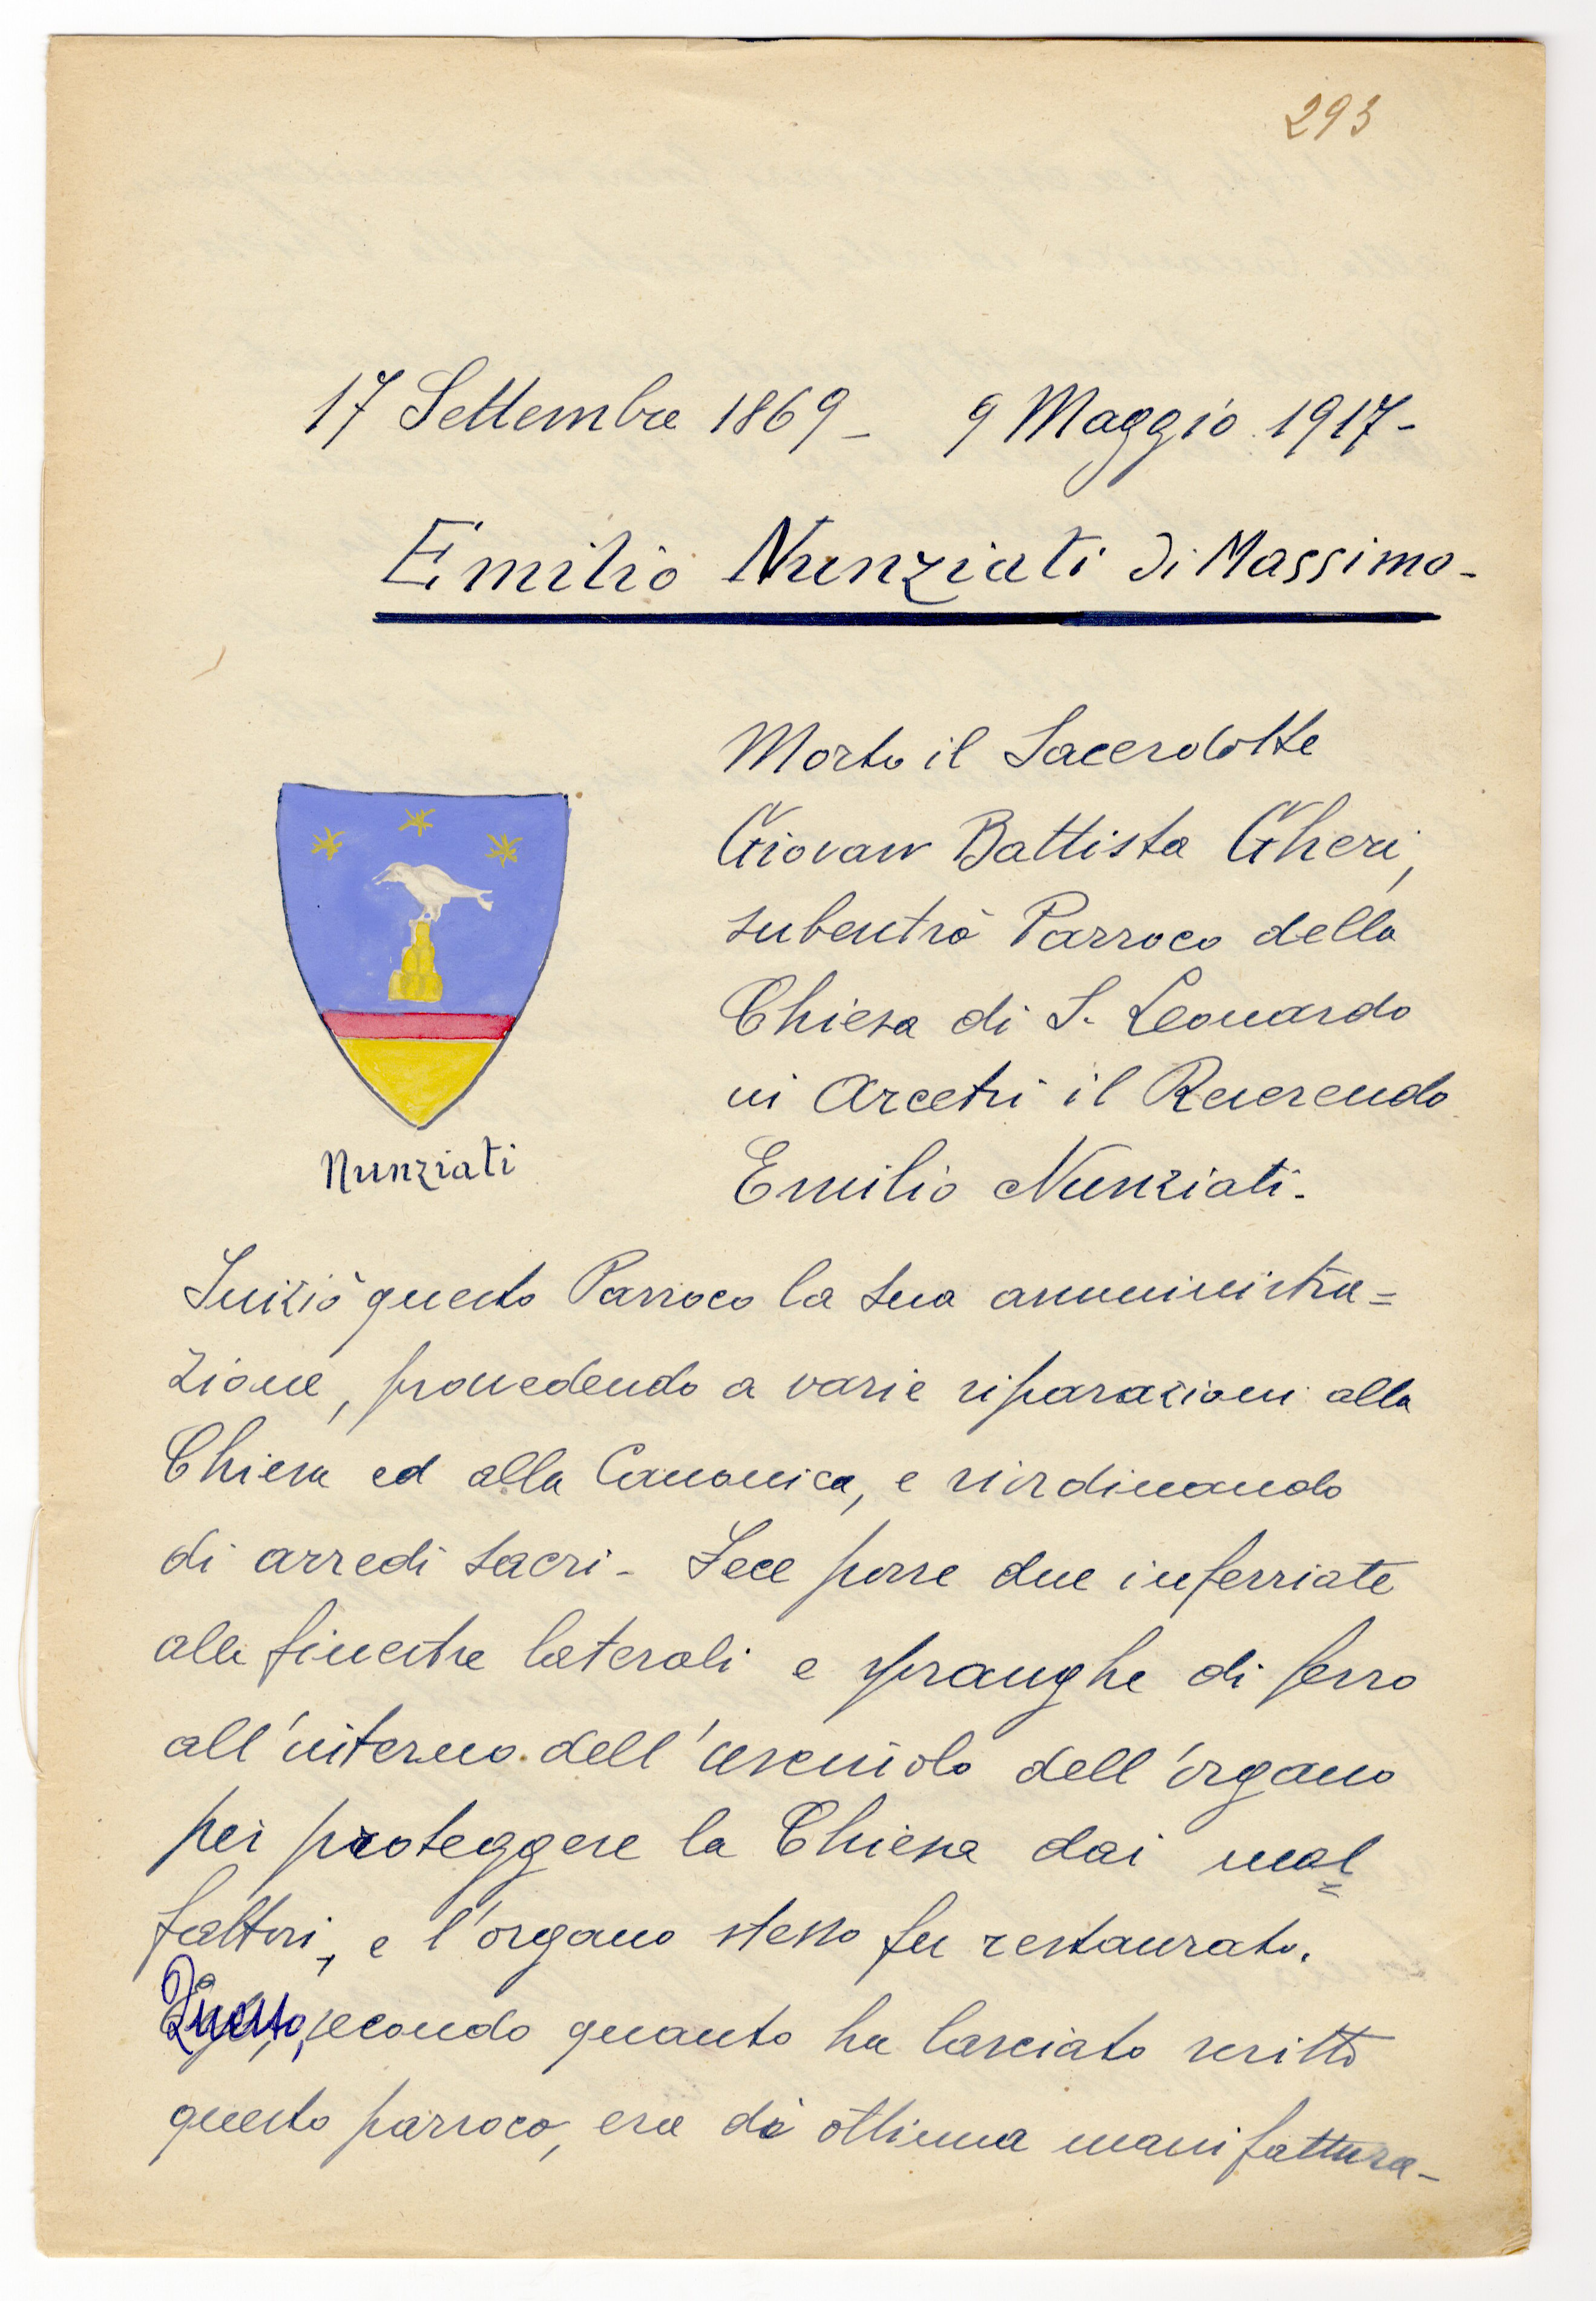 293
17 Settembre 1869 - 9 Maggio 1917 -
Emilio Nunziati di Massimo -
Morto il Sacerdotte
Giovan Battista Gheri,
subentrò Parroco della
Chiesa di S. Leonardo
in Arcetri il Reverendo
Emilio Nunziati -
Nunziati
Iniziò questo Parroco la sua amministra=
zione, provvedendo a varie riparazioni alla
Chiesa ed alla Canonica, e riordinando
di arredi sacri - Fece porre due inferriate
alle finestre laterali e spranghe di ferro
all'interno dell'usciuolo dell'organo
per proteggere la Chiesa dai mal=
fattori, e l'organo stesso fu restaurato.
Questo, secondo quanto ha lasciato scritto
questo parroco, era di ottima manifattura -